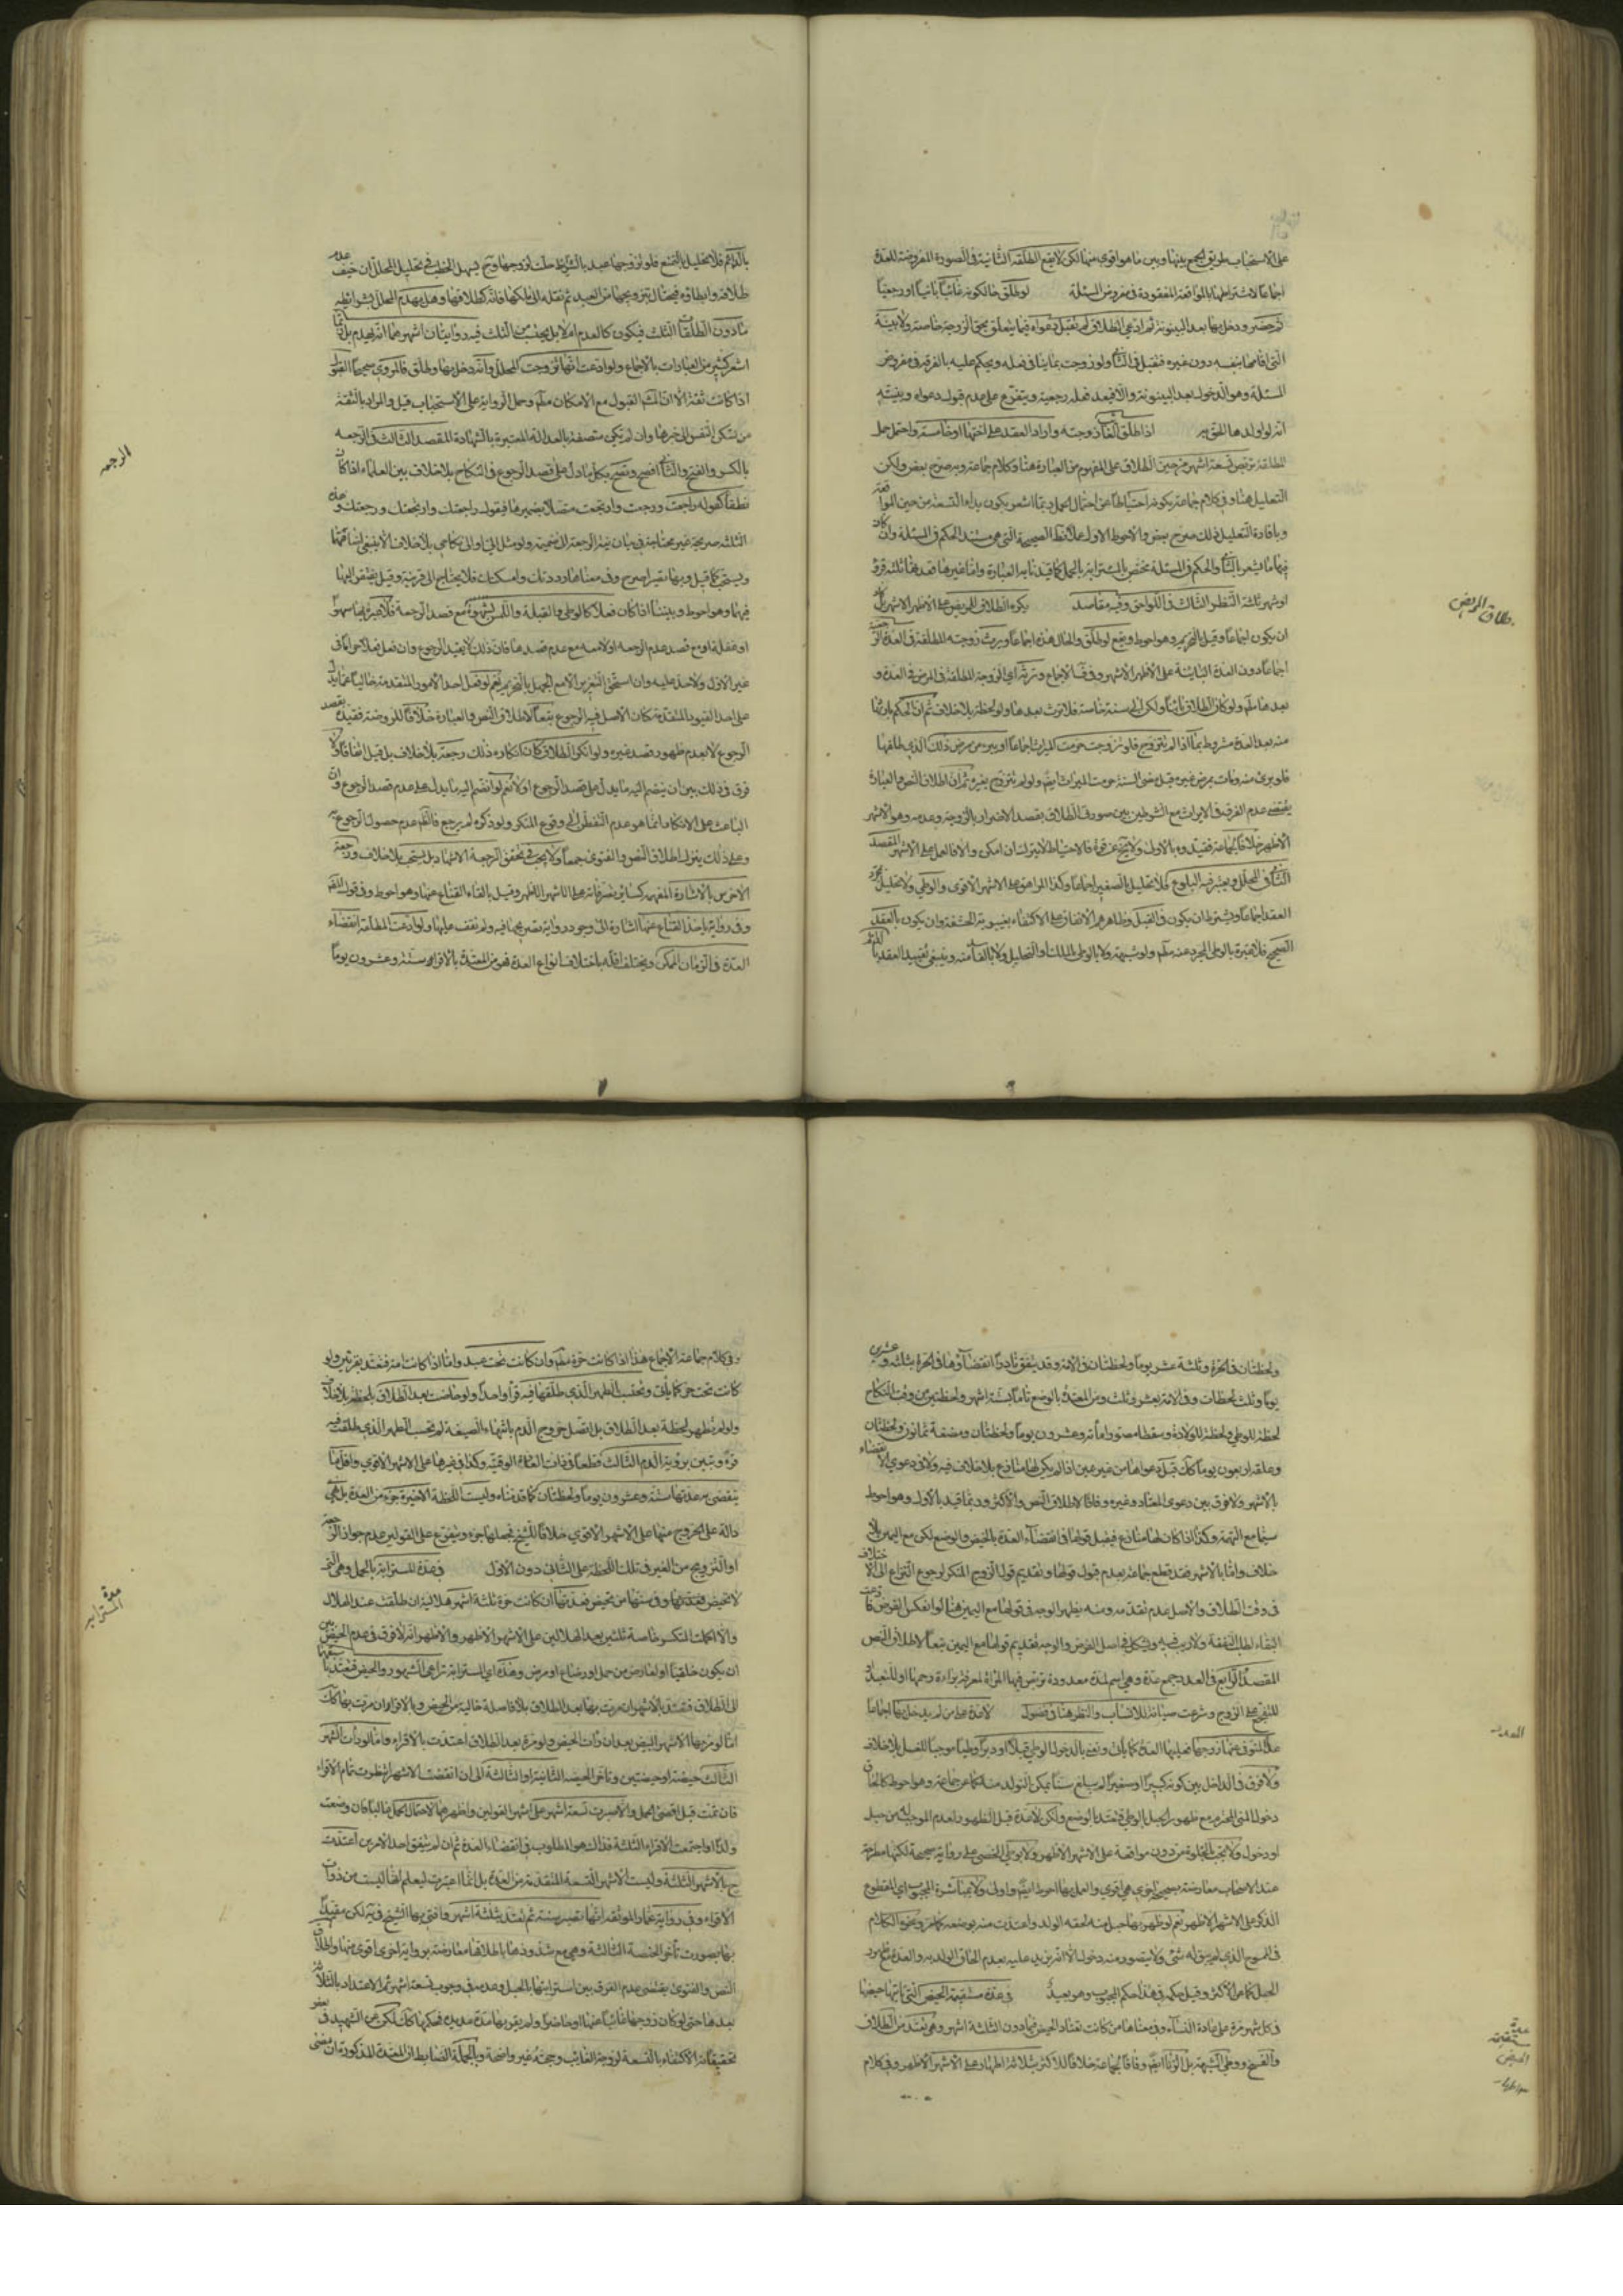 على الاستحباب طريق الجمع بينها وبين ما هو اقوى منها لكن لا يقع الطلقة الثانية في الصورة المفروضة للعدة
اجماعا لاشتراطها بالمواقعة المفقودة في مفروض المسئلة لو طلق حال كونه غائبا بائنا او رجعيا
ثم حضر ودخل بها بعد البينونة ثم ادعى الطلاق لم تقبل دعواه فيما يتعلق بحق الزوجة خاصة ولا بينة
التي اقامها بنفسه دون غيره فتقبل في الثاني ولو زوجت بما ينافي فعله ويحكم عليه بالفرقة في مفروض
المسئلة وهو الدخول بعد البينونة والا فيعد فعله رجعية ويتفرع على عدم قبول دعواه وبينته
انه لو اولدها الحق به اذا طلق الغائب زوجته واراد العقد على اختها او خامسة واحتمل حمل
المطلقة تربص تسعة اشهر من حين الطلاق على المفهوم من العبارة هنا وكلام جماعة وبه صرح بعض ولكن
التعليل هنا وفي كلام جماعة بكونه احتياطا عن احتمال الحمل ربما اشعر بكون بدء التسعة من حين المواقعة
وبافادة التعليل ذلك صرح بعض والاحوط الاول عملا بظ الصحيحة التي هي مستند الحكم في المسئلة وان كان
فيها ما يشعر بالثاني والحكم في المسئلة مختص بالمسترابة بالحمل كما قيدنا به العبارة واما غيرها فعدتها ثلثة قروء
او شهور ثلثة النظر الثالث في اللواحق وفيه مقاصد يكره الطلاق للمريض على الاظهر الاشهر بل كاد
ان يكون اجماعا وقيل بالتحريم وهو احوط ويقع لو طلق والحال هذه اجماعا ويرث زوجته المطلقة في العدة الرجعية
اجماعا دون العدة البائنة على الاظهر الاشهر وفي الاجماع وترثه اي الزوجة المطلقة في المرض في العدة و
بعدها مط ولو كان الطلاق بائنا ولكن الى سنة خاصة فلا ترث بعدها ولو لحظة بلا خلاف ثم ان الحكم بارثها
منه بعد العدة مشروط بما اذا لم يتزوج فلو تزوجت حرمت الميراث اجماعا او يبرء من مرض ذلك الذي طلقها
فلو برئ منه ومات بمرض غيره قبل مضي السنة حرمت الميراث ايضا ولو لم يتزوج بغيره ثم ان اطلاق النص والعبارة
يقتضي عدم الفرق في الارث مع الشرطين بين صورتي الطلاق بقصد الاضرار بالزوجة وعدمه وهو الاشهر
الاظهر خلافا لجماعة فقيدوه بالاول ولا يخ عن قوة فالاحتياط لا يترك ان امكن والا فالعمل على الاشهر المقصد
الثاني في المحلل ويعتبر فيه البلوغ فلا تحليل للصغير اجماعا وكذا المراهق على الاشهر الاقوى والوطي ولا تحليل بمجرد
العقد اجماعا ويشترط ان يكون في القبل وظاهرهم الاتفاق على الاكتفاء بغيبوبة الحشفة وان يكون بالعقد
الصحيح فلا عبرة بالوطي المجرد عنه مط ولو شبهة ولا بالوطي بالملك او التحليل ولا بالفاسد منه وينبغي تقييد العقد بالدائم
طلاق المريض
بالدائم فلا تحليل بالتمتع فلو تزوجها عبد بالشرائط حلت لزوجها وح يسهل الخطب في تحليل المحلل ان خيف عدم
طلاقه وابطاؤه فيحتال بتزويجها من العبد ثم نقله الى ملكها فانه كطلاقها وهل يهدم المحلل بشرائطه
ما دون الطلقات الثلث فيكون كالعدم ام لا بل يحتسب من الثلث فيه روايتان اشهرهما انه يهدم بل ربما
اشعر كثير من العبارات بالاجماع ولو ادعت انها تزوجت المحلل وانه دخل بها وطلق فالمروي صحيحا القبول
اذا كانت ثقة الا ان الاشهر القبول مع الامكان مط وحمل الرواية على الاستحباب قيل والمراد بالثقة
من تسكن النفس الى خبرها وان لم تكن متصفة بالعدالة المعتبرة بالشهادة المقصد الثالث في الرجعة
بالكسر والفتح والثاني افصح وتصح بكل ما دل على قصد الرجوع في النكاح بلا خلاف بين العلماء اذا كان
نطقا كقوله راجعت ورجعت وارتجعت متصلا بضميرها فيقول راجعتك وارتجعتك ورجعتك وهذه
الثلثة صريحة غير محتاجة في بيان نية الرجعة الى ضميمة ولو مثل الي او الى نكاحي بلا خلاف الا ينبغي اضافتها
ويستحب كما قيل وبها بغير صريح وفي معناها رددتك وامسكتك فلا يحتاج الى قرينة وقيل يفتقر اليها
فيهما وهو احوط وبيننا اذا كان فعلا كالوطي والقبلة واللمس بشهوة مع قصد الرجعة فلا عبرة بها سهوا
او غفلة او مع قصد عدم الرجعة او لا معه مع عدم قصدها فان ذلك لا يفيد الرجوع وان فعل فعلا حراما في
غير الاول ولا حد عليه وان استحق التعزير الا مع الجهل بالتحريم نعم لو فعل احد الامور المتقدمة خاليا عما يدل
على احد القيود المتقدمة كان الاصل فيه الرجوع تبعا لاطلاق النص والعبارة خلافا للروضة فقيده بقصد
الرجوع لا بعدم ظهور قصد غيره ولو انكر الطلاق كان انكاره ذلك رجعة بلا خلاف بل قيل اتفاقا ولا
فرق في ذلك بين ان ينضم اليه ما يدل على قصد الرجوع او لا نعم لو انضم اليه ما يدل على عدم قصد الرجوع وان
الباعث على الانكار انما هو عدم التفطن الى وقوع المنكر ولو ذكره لم يرجع فالظ عدم حصول الرجوع به
وعلى ذلك ينزل اطلاق النص والفتوى جمعا ولا يجب في تحقق الرجعة الاشهاد بل يستحب بلا خلاف ورجعة
الاخرس بالاشارة المفهمة كسائر تصرفاته على الاشهر الاظهر وقيل بالقاء القناع عنها وهو احوط وفي قول الفقيه
وفي رواية باخذ القناع عنها اشارة الى وجود رواية بتصريحها فيه ولم نقف عليها ولو ادعت المطلقة انقضاء
العدة في الزمان الممكن ويختلف اقله باختلاف انواع العدة فهو من المعتدة بالاقراء ستة وعشرون يوما
الرجعة
ولحظتان في الحرة وثلثة عشر يوما ولحظتان في الامة وقد يتفق نادرا انقضاؤها في الحرة بثلثة وعشرين
يوما وثلث لحظات وفي الامة بعشرة وثلث ومن المعتدة بالوضع تاما بستة اشهر ولحظتين من وقت النكاح
لحظة للوطي ولحظة للولادة وسقطا مصورا مائة وعشرون يوما ولحظتان ومضغة ثمانون ولحظتان
وعلقة اربعون يوما كذلك قبل دعواها من غير يمين اذا لم يكن لها منازع بلا خلاف فيه ولا في دعوى الانقضاء
بالاشهر ولا فرق بين دعوى المعتاد وغيره وفاقا لاطلاق النص والاكثر وربما قيد بالاول وهو احوط
سيما مع التهمة وكذا اذا كان لها منازع فيقبل قولها في انقضاء العدة بالحيض والوضع لكن مع اليمين بلا
خلاف واما بالاشهر فقد قطع جماعة بعدم قبول قولها وتقديم قول الزوج المنكر لرجوع النزاع الى الاختلاف
في وقت الطلاق والاصل عدم تقدمه ومنه يظهر الوجه في قولها مع اليمين هنا لو انعكس الفرض فادعت
البقاء لطلب النفقة ولا ريب فيه ويشكل في اصل الفرض والوجه تقديم قولها مع اليمين تبعا لاطلاق النص
المقصد الرابع في العدد جمع عدة وهي اسم لمدة معدودة تتربص فيها المرأة لمعرفة براءة رحمها او للتعبد او
للتفجع على الزوج وشرعت صيانة للانساب والنظر هنا في فصول لا عدة على من لم يدخل بها اجماعا
عدا المتوفى عنها زوجها فعليها العدة كما يأتي ونعني بالدخول الوطي قبلا او دبرا وطيا موجبا للغسل بلا خلاف
ولا فرق في الداخل بين كونه كبيرا او صغيرا لم يبلغ سنا يمكن التولد منه كما عن جماعة وهو احوط كالحاق
دخول المني المحترم مع ظهور الحبل بالوطي فتعتد بالوضع ولكن لا عدة قبل الظهور لعدم الموجب له من حمل
او دخول ولا تجب بالخلوة من دون مواقعة على الاشهر الاظهر ولا بوطي الخصي على رواية صحيحة لكنها مطرحة
عند الاصحاب معارضة بصحيحة اخرى هي اقوى والعمل بها احوط ايضا واولى ولا بمباشرة المجبوب اي المقطوع
الذكر على الاشهر الاظهر نعم لو ظهر بها حمل منه لحقه الولد واعتدت منه بوضعه كما مر ونحوه الكلام
في المسوح الذي لم يبق له شئ ولا يتصور منه دخول الا انه يزيد عليه بعدم الحاق الولد به والعدة مع ظهور
الحمل كما عن الاكثر وقيل حكمه في هذا حكم المجبوب وهو بعيد في عدة مستقيمة الحيض التي يأتيها حيضها
في كل شهر مرة على عادة النساء وفي معناها من كانت تعتاد الحيض فيما دون الثلثة اشهر وهي تعتد من الطلاق
والفسخ ووطي الشبهة بل الزنا ايضا وفاقا لجماعة خلافا للاكثر بثلاثة اطهار على الاشهر الاظهر وفي كلام
العدد
عدة
مستقيمة
الحيض
وفي كلام جماعة الاجماع هذا اذا كانت حرة مط وان كانت تحت عبد واما اذا كانت امة فتعتد بقرئين ولو
كانت تحت حر كما يأتي وتحتسب الطهر الذي طلقها فيه قرءا واحدا ولو حاضت بعد الطلاق بلحظة بلا خلاف
ولو لم تطهر لحظة بعد الطلاق بل اتصل خروج الدم بانتهاء الصيغة لم تحتسب الطهر الذي طلقت فيه
قرءا وتبين برؤية الدم الثالث قطعا في ذات العادة الوقتية وكذا في غيرها على الاشهر الاقوى واقل ما
ينقضي به عدتها ستة وعشرون يوما ولحظتان كما قدمناه وليست اللحظة الاخيرة جزء من العدة بل هي
دالة على الخروج منها على الاشهر الاقوى خلافا للشيخ فجعلها جزء ويتفرع على القولين عدم جواز الرجعة
او التزويج من الغير في تلك اللحظة على الثاني دون الاول في عدة المسترابة بالحمل وهي التي
لا تحيض وفي سنها من تحيض فعدتها ان كانت حرة ثلثة اشهر هلالية ان طلقت عند الهلال
والا اكملت المنكسر خاصة ثلثين بعد الهلالين على الاشهر الاظهر والاظهر انه لا فرق في عدم الحيض بين
ان يكون خلقيا او لعارض من حمل او رضاع او مرض وهذه اي المسترابة تراعي الشهور والحيض فتعتد باسبقهما
الى الطلاق فتعتد بالاشهر ان مرت بها بعد الطلاق بلا فاصلة خالية من الحيض وبالاقراء ان مرت بها كذلك
اما لو مر بها الاشهر البيض بعد ان رأت الحيض ولو مرة بعد الطلاق اعتدت بالاقراء واما لو رأت الشهر
الثالث حيضة او حيضتين وتأخر الحيضة الثانية او الثالثة الى ان انقضت الاشهر انتظرت تمام الاقراء
فان تمت قبل اقصى الحمل والا صبرت تسعة اشهر على اشهر القولين واظهرهما لاحتمال الحمل غالبا فان وضعت
ولدا او اجتمعت الاقراء الثلثة فذاك هو المطلوب في انقضاء العدة ثم ان لم يتفق احد الامرين اعتدت
ح بالاشهر الثلثة وليست الاشهر التسعة المتقدمة من العدة بل انما اعتبرت ليعلم انها ليست من ذوات
الاقراء وفي رواية عمار الموثقة انها تصبر سنة ثم تعتد بثلثة اشهر وافتى بها الشيخ في يه لكن مقيدا
بها بصورة تأخر الحيضة الثالثة وهي مع شذوذها باطلاقها معارضة برواية اخرى اقوى منها واطلاق
النص والفتوى يقتضي عدم الفرق بين استرابتها بالحمل وعدمه في وجوب تسعة اشهر ثم الاعتداد بالثلاثة
بعدها حتى لو كان زوجها غائبا عنها او حاضرا ولم يقربها مدة مديدة فحكمها كذلك لكن عن الشهيد في بعض
تحقيقاته الاكتفاء بالتسعة لزوجة الغائب وحجته غير واضحة وبالجملة الضابط ان المعتدة المذكورة ان مضى
عدة
المسترابة